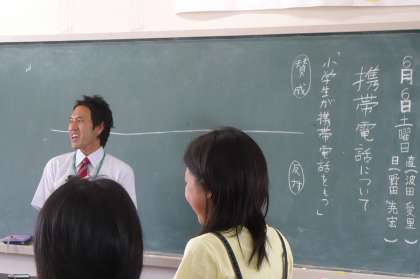 6月6日土曜日
直(波田 愛里
日(野田
携帯電話について
「小学生が携帯電話をもつ」
賛成
反対